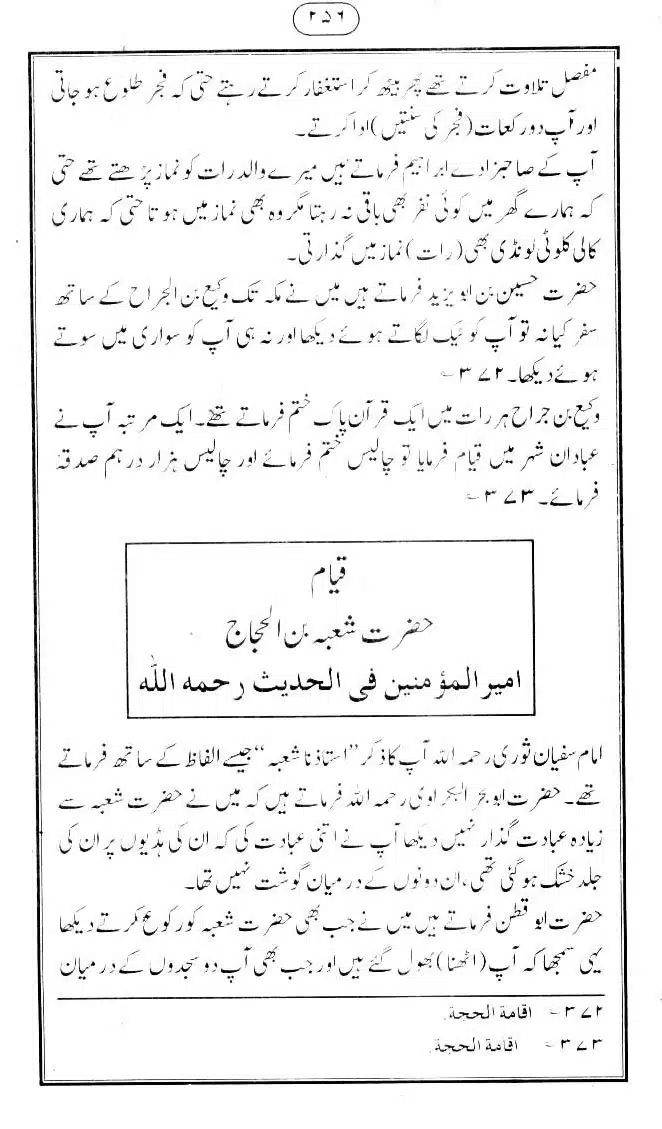 ۲۵۶
مفصل تلاوت کرتے تھے پھر بیٹھ کر استغفار کرتے رہتے حتی کہ فجر طلوع ہو جاتی
اور آپ دو رکعات (فجر کی سنتیں) ادا کرتے۔
آپ کے صاحبزادے ابراہیم فرماتے ہیں میرے والد رات کو نماز پڑھتے تھے حتی
کہ ہمارے گھر میں کوئی نفر بھی باقی نہ رہتا مگر وہ بھی نماز میں ہوتا حتی کہ ہماری
کالی کلوٹی لونڈی بھی (رات) نماز میں گذارتی۔
حضرت حسین بن ابو یزید فرماتے ہیں میں نے مکہ تک وکیع بن الجراح کے ساتھ
سفر کیا نہ تو آپ کو ٹیک لگاتے ہوئے دیکھا اور نہ ہی آپ کو سواری میں سوتے
ہوئے دیکھا۔ ۳۷۲؎
وکیع بن جراح ہر رات میں ایک قرآن پاک ختم فرماتے تھے۔ ایک مرتبہ آپ نے
عبادان شہر میں قیام فرمایا تو چالیس ختم فرمائے اور چالیس ہزار درہم صدقہ
فرمائے۔ ۳۷۳؎
قیام
حضرت شعبہ بن الحجاج
امیر المؤمنین فی الحدیث رحمہ اللہ
امام سفیان ثوری رحمہ اللہ آپ کا ذکر ”استاذنا شعبہ“ جیسے الفاظ کے ساتھ فرماتے
تھے۔ حضرت ابو بحر البکراوی رحمہ اللہ فرماتے ہیں کہ میں نے حضرت شعبہ سے
زیادہ عبادت گذار نہیں دیکھا آپ نے اتنی عبادت کی کہ ان کی ہڈیوں پر ان کی
جلد خشک ہو گئی تھی، ان دونوں کے درمیان گوشت نہیں تھا۔
حضرت ابو قطن فرماتے ہیں میں نے جب بھی حضرت شعبہ کو رکوع کرتے دیکھا
یہی سمجھا کہ آپ (اٹھنا) بھول گئے ہیں اور جب بھی آپ دو سجدوں کے درمیان
۳۷۲؎ اقامة الحجة.
۳۷۳؎ اقامة الحجة.